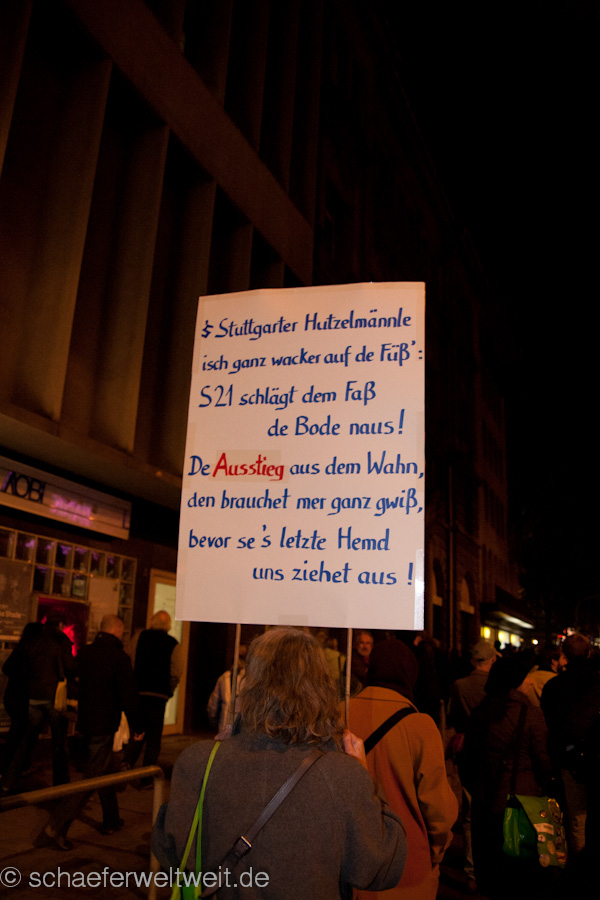 's Stuttgarter Hutzelmännle
isch ganz wacker auf de Füß':
S21 schlägt dem Faß
de Bode naus!
De Ausstieg aus dem Wahn,
den brauchet mer ganz gwiß,
bevor se's letzte Hemd
uns ziehet aus!
© schaeferweltweit.de